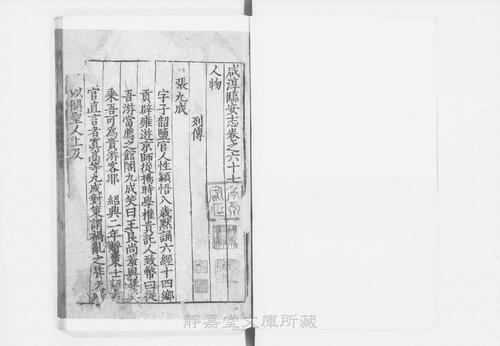 咸淳臨安志卷之六十七
人物
列傳
張九成
字子韶鹽官人性穎悟八歲默誦六經十四鄉
貢辟雍遊京師從楊時學權貴託人致幣曰從
吾游當薦之館閣九成笑曰王良尚羞與嬖奚
乘吾可為貴游客耶 紹興二年
官直言者寘高等九成對策謂禍亂之作天
以開聖人也
靜嘉堂文庫所藏